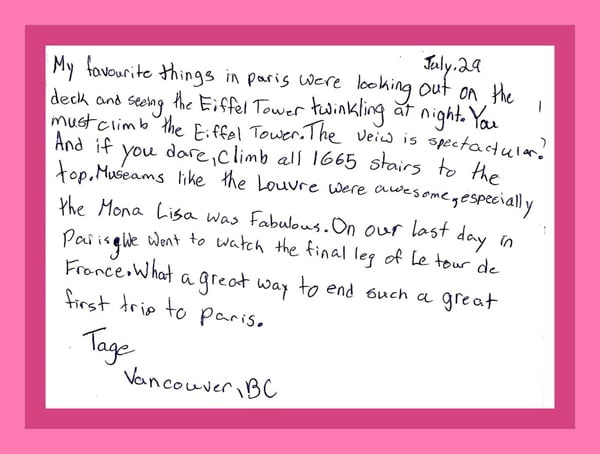 July.29
My favourite things in paris were looking out on the
deck and seeing the Eiffel Tower twinkling at night. You
must climb the Eiffel Tower. The veiw is spectactular!
And if you dare, climb all 1665 stairs to the
top. Museams like the Louvre were awesome, especially
the Mona Lisa was Fabulous. On our last day in
Paris, We went to watch the final leg of Le tour de
France. What a great way to end such a great
first trip to paris.
Tage
Vancouver, BC